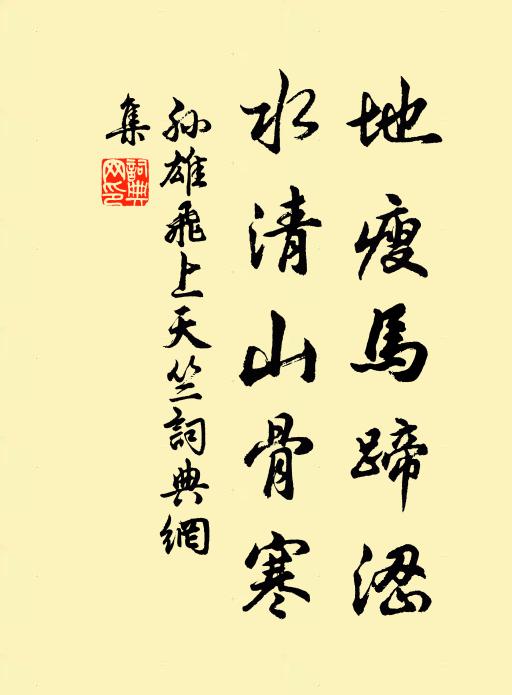 地瘦馬蹄澀
水清山骨寒
孙雄飛上天竺詞典網
集
詞典
网印